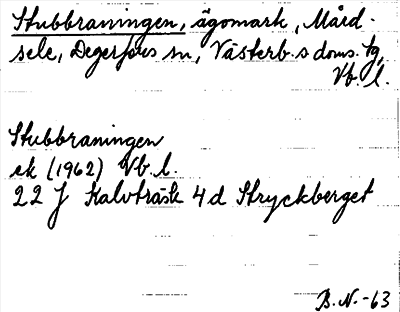 Stubbraningen, ägomark, Mård-
sele, Degerfors sn, Västerb. s doms. tg,
Vb. l.
Stubbraningen
ek (1962) Vb. l.
22 J Kalvträsk 4 d Stryckberget
B. N. -63